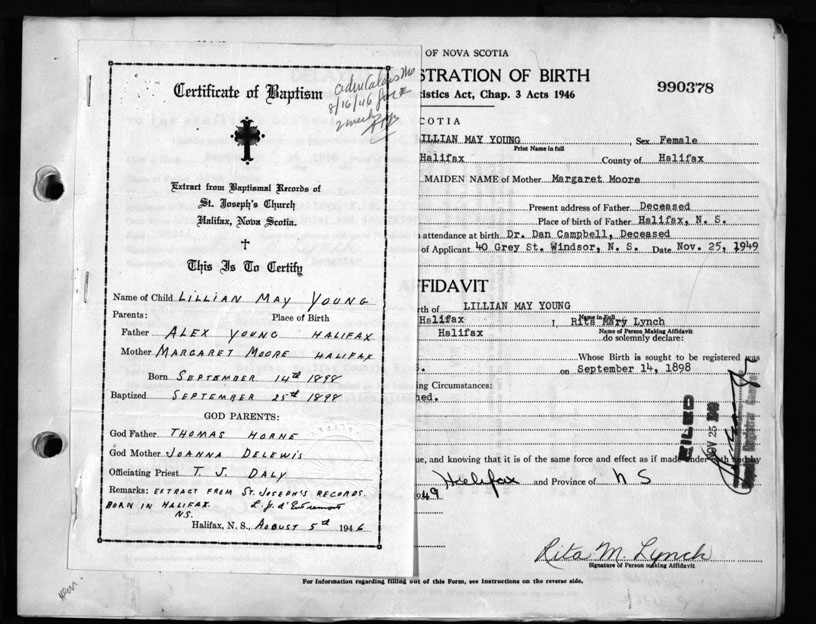 Certificate of Baptism
8/16/46
Extract from Baptismal Records of
St. Joseph's Church
Halifax, Nova Scotia.
This Is To Certify
Name of Child LILLIAN MAY YOUNG
Parents: Place of Birth
Father ALEX YOUNG HALIFAX
Mother MARGARET MOORE HALIFAX
Born SEPTEMBER 14th 1898
Baptized SEPTEMBER 25th 1898
GOD PARENTS:
God Father THOMAS HORNE
God Mother JOANNA DELEWIS
Officiating Priest T. J. DALY
Remarks: EXTRACT FROM ST. JOSEPH'S RECORDS.
BORN IN HALIFAX.
N.S.
Halifax, N. S., AUGUST 5th 1946
OF NOVA SCOTIA
STRATION OF BIRTH
990378
istics Act, Chap. 3 Acts 1946
COTIA
ILLIAN MAY YOUNG, Sex Female
Print Name in full
Halifax County of Halifax
MAIDEN NAME of Mother Margaret Moore
Present address of Father Deceased
Place of birth of Father Halifax, N. S.
attendance at birth Dr. Dan Campbell, Deceased
of Applicant 40 Grey St. Windsor, N. S. Date Nov. 25, 1949
FFIDAVIT
rth of LILLIAN MAY YOUNG
Name in Full
Halifax I, Rita Mary Lynch
Name of Person Making Affidavit
Halifax do solemnly declare:
Whose Birth is sought to be registered was
on September 14, 1898
ng Circumstances:
hed.
FILED
NOV 25 1949
ue, and knowing that it is of the same force and effect as if made under oath and by
949 Halifax and Province of N S
Rita M Lynch
Signature of Person making Affidavit
For Information regarding filling out of this Form, see Instructions on the reverse side.